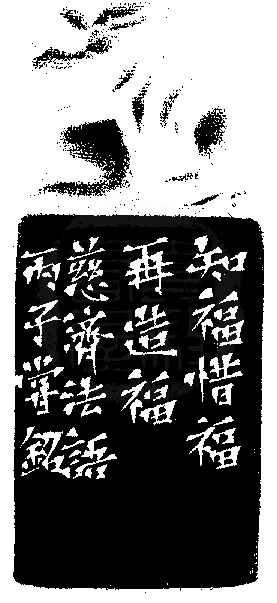 知福惜福
再造福
慈濟法語
丙子銘